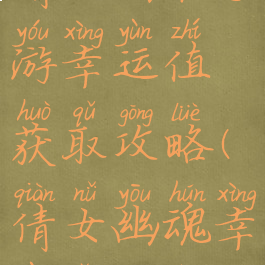 yóu xìng yùn zhí
游幸运值
huò qǔ gōng lüè
获取攻略(
qiàn nǚ yōu hún xìng
倩女幽魂幸